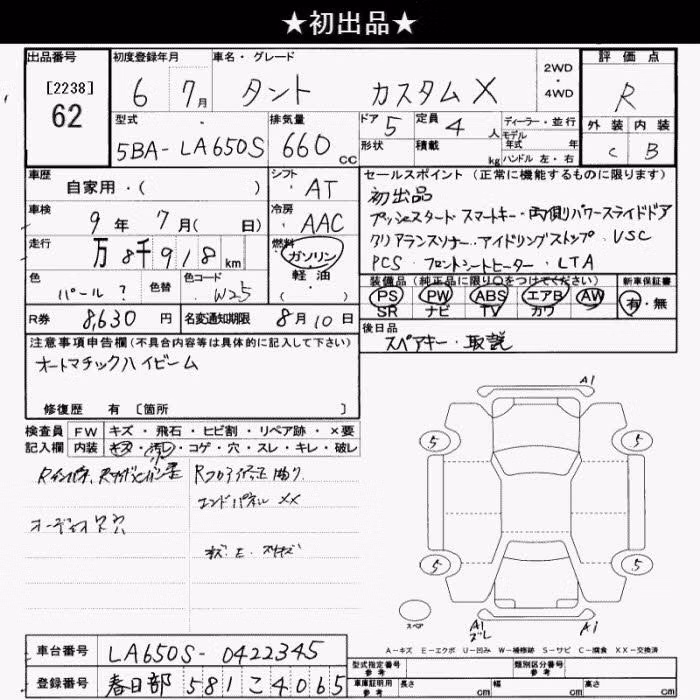 ★初出品★
出品番号 初度登録年月 車名・グレード 2WD・4WD 評価点
[2238] 62 6 7月 タント カスタムX R
型式 排気量 ドア 定員 ディーラー・並行 外装 内装
5BA-LA650S 660cc 5 4人 モデル年式 年 C B
形状 積載 kg ハンドル 左・右
車歴 シフト セールスポイント (正常に機能するものに限ります)
自家用・( ) AT 初出品
車検 冷房 プッシュスタート・スマートキー・両側パワースライドドア
9年 7月( 日) AAC クリアランスソナー・アイドリングストップ・VSC
走行 燃料 PCS・フロントシートヒーター・LTA
万 8千918km ガソリン
軽油・( )
装備品(純正品に限り○をつけてください) 新車保証書
PS PW ABS エアB AW 有・無
SR ナビ TV カワ
色 色替 色コード
パール? W25
R券 8,630円 名変通知期限 8月10日
後日品
スペアキー・取説
注意事項申告欄(不具合内容等は具体的に記入して下さい)
オートマチックハイビーム
修復歴 有 [箇所 ]
検査員 FW キズ・飛石・ヒビ割・リペア跡・×要
記入欄 内装 キズ・汚れ・コゲ・穴・スレ・キレ・破レ
Rフロア修正曲り
エンドパネル XX
キズ・E・
A1
5 5
5 5
スペア
A1 ズレ A1
A-キズ E-エクボ U-凹み W-補修跡 S-サビ C-腐食 XX-交換済
車台番号 LA650S-0422345
登録番号 春日部 581 こ 4065
型式指定番号 参考 類別区分番号 参考
車庫証明用 参考 長さ cm 幅 cm 高さ cm